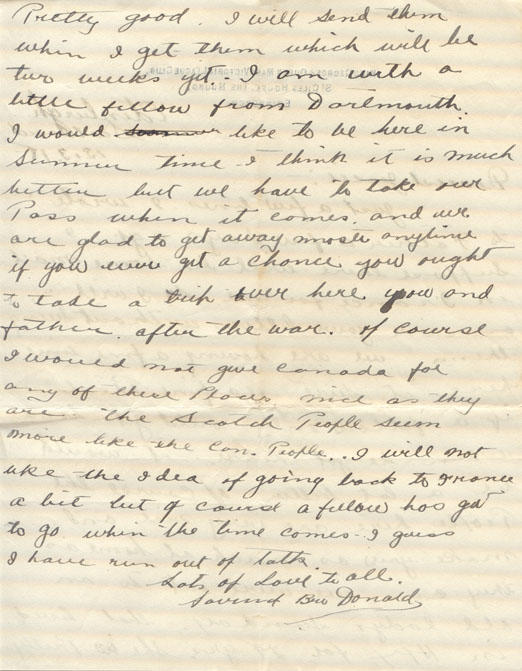 Pretty good. I will send them
when I get them which will be
two weeks yet. I am with a
little fellow from Dartmouth.
I would like to be here in
Summer time I think it is much
better but we have to take our
Pass when it comes. and we
are glad to get away most anytime
if you ever get a chance you ought
to take a trip over here you and
father. after the war. of course
I would not give Canada for
any of these Places nice as they
are. the Scotch People seem
more like the Can. People. I will not
like the Idea of going back to France
a bit but of course a fellow has got
to go when the time comes. I guess
I have run out of talk.
Lots of Love to all.
Bro Donald